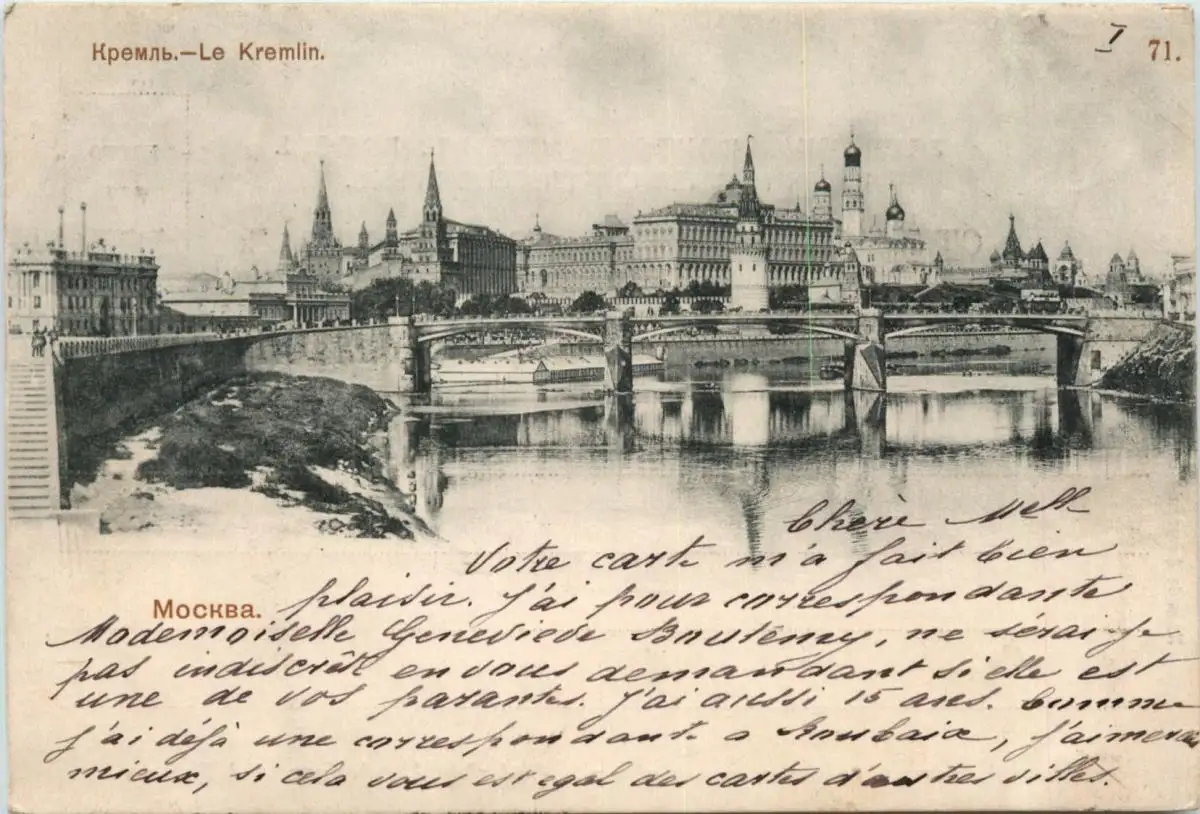 Кремль.—Le Kremlin.
I 71.
Chère Mell
Votre carte m'a fait bien
plaisir. J'ai pour correspondante
Москва.
Mademoiselle Geneviève Boutémy, ne serai-je
pas indiscrèt en vous demandant si elle est
une de vos parantes. J'ai aussi 15 ans. Comme
j'ai déjà une correspondante a Roubaix, j'aimerai
mieux, si cela vous est egal des cartes d'autres villes.